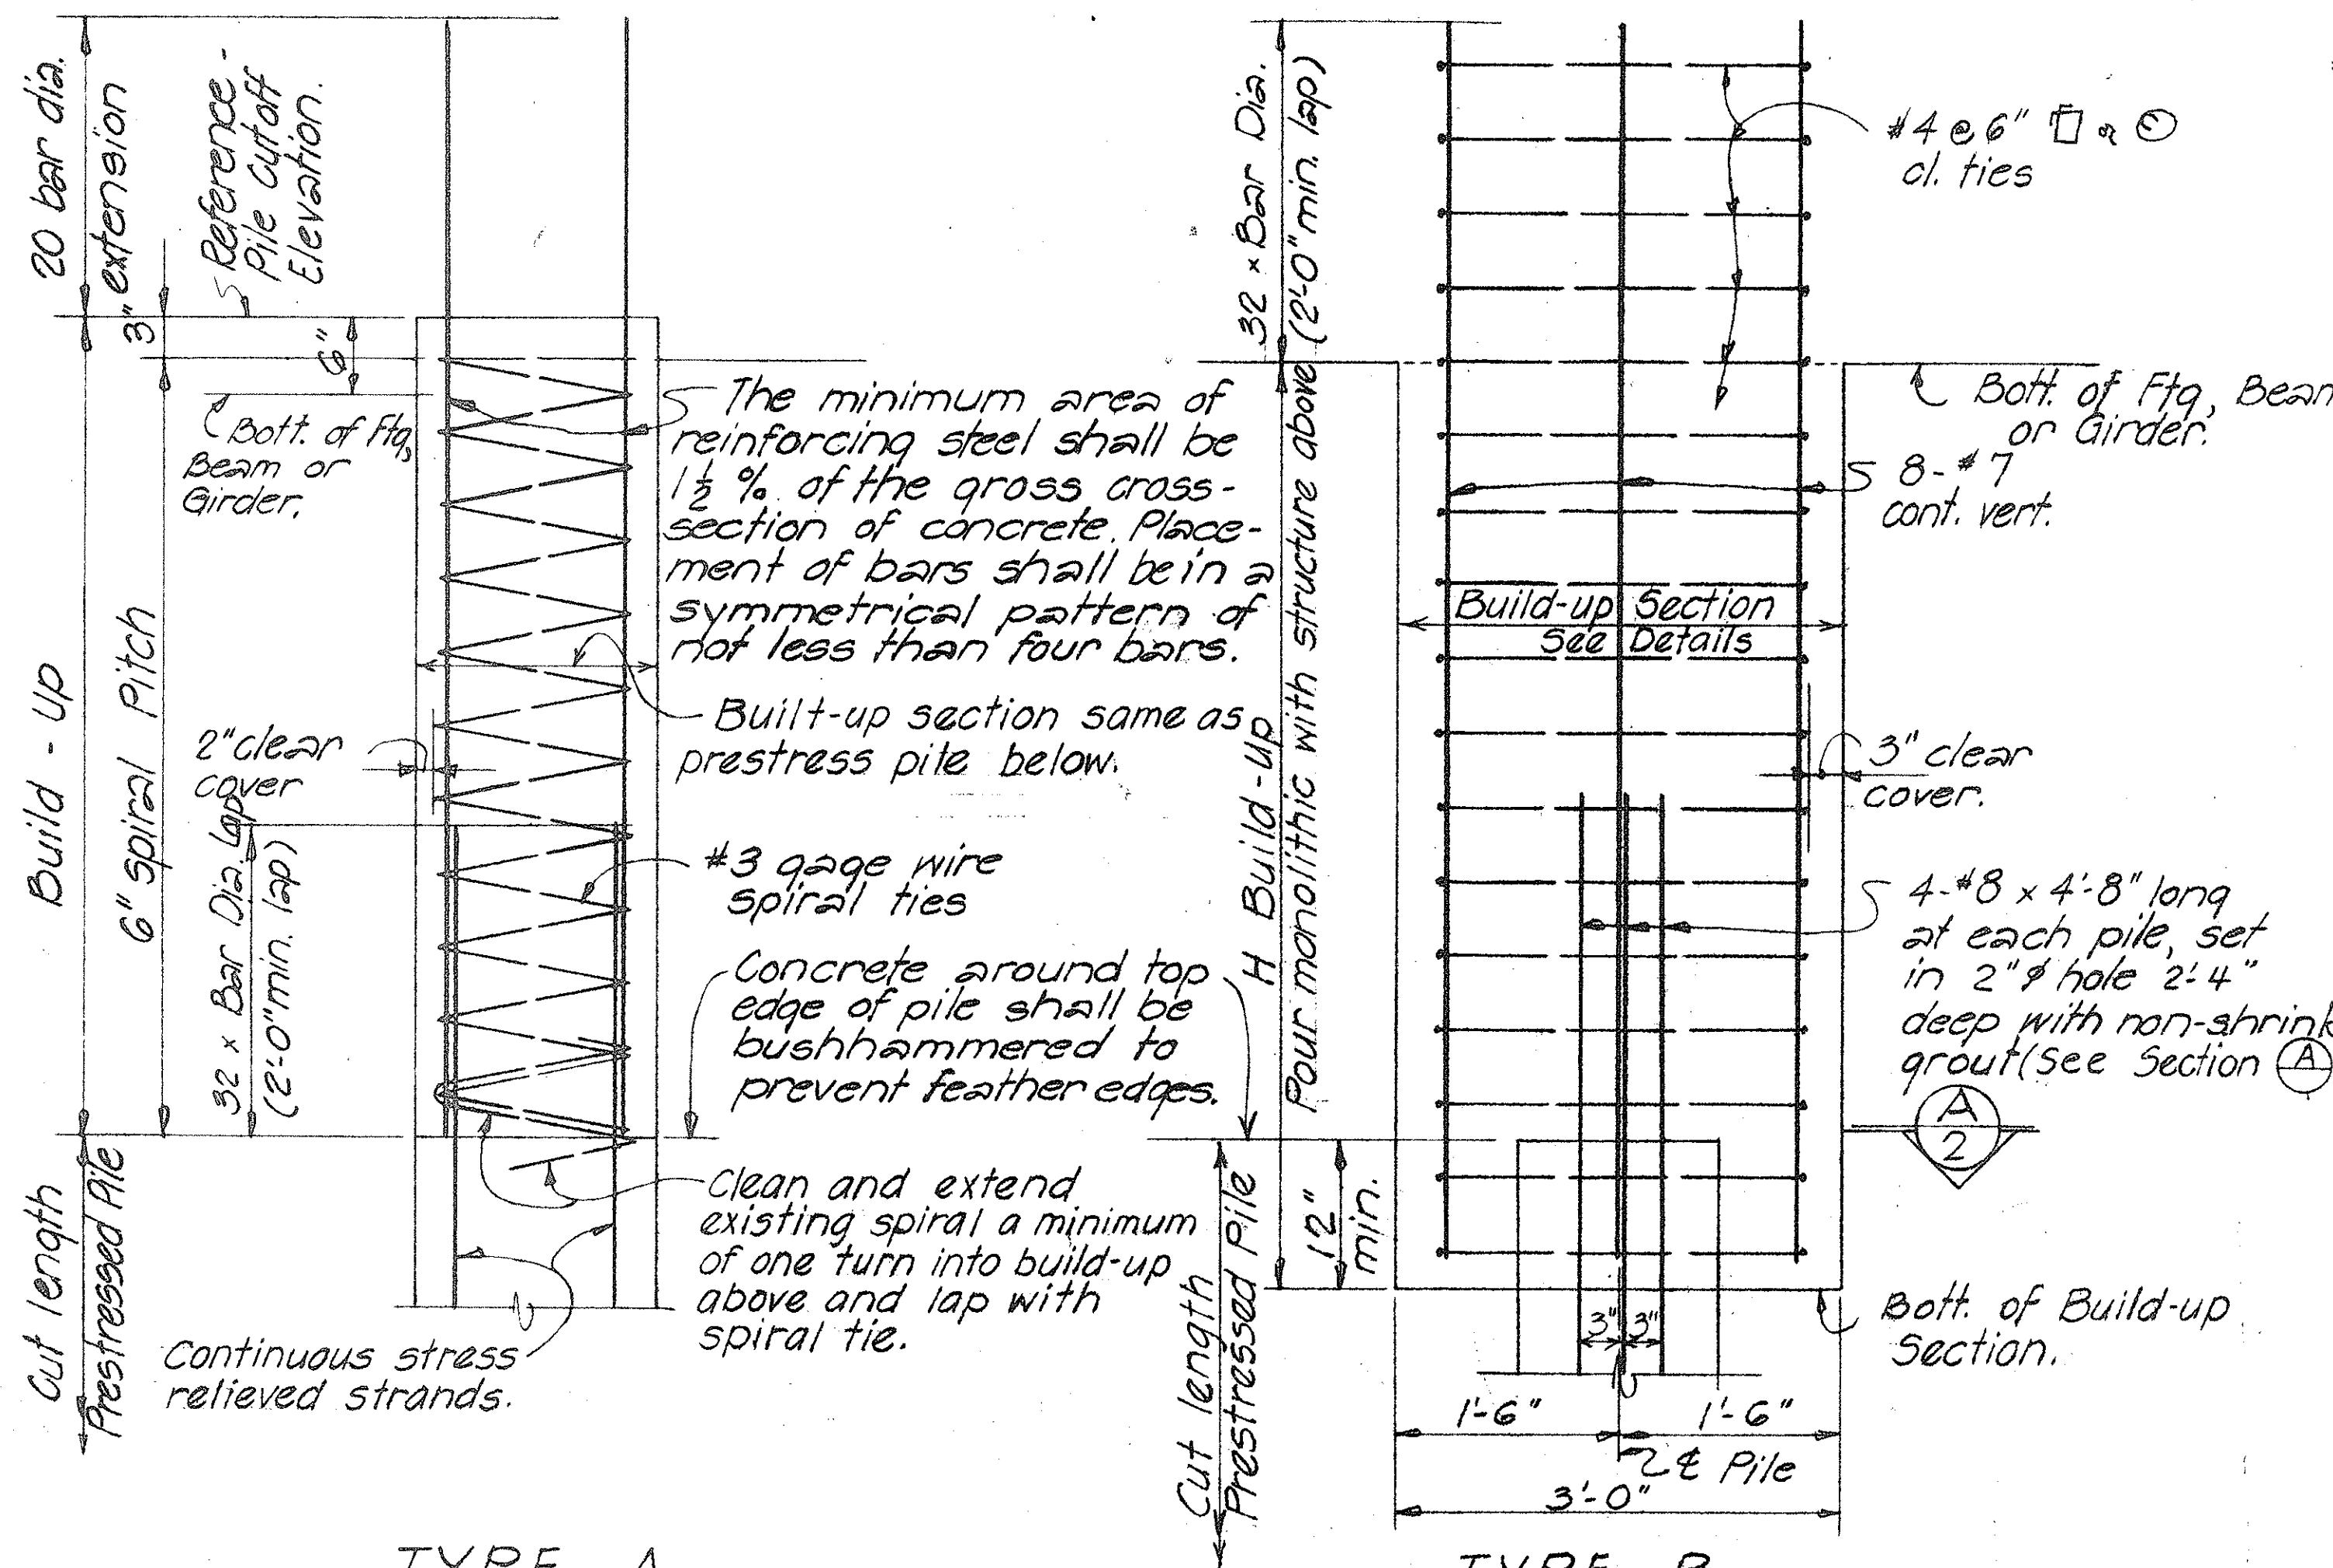 20 bar dia.
extension
3"
Reference -
Pile Cutoff
Elevation.
6"
Bott. of Ftg,
Beam or
Girder.
Build - Up
6" spiral Pitch
2" clear
cover
32 x Bar Dia. Lap
(2'-0" min. lap)
Cut length
Prestressed Pile
The minimum area of
reinforcing steel shall be
1½ % of the gross cross-
section of concrete. Place-
ment of bars shall be in a
symmetrical pattern of
not less than four bars.
Built-up section same as
prestress pile below.
#3 gage wire
spiral ties
Concrete around top
edge of pile shall be
bushhammered to
prevent feather edges.
Clean and extend
existing spiral a minimum
of one turn into build-up
above and lap with
spiral tie.
Continuous stress
relieved strands.
TYPE A
32 x Bar Dia.
(2'-0" min. lap)
H Build-up
Pour monolithic with structure above
Cut length
Prestressed Pile
12"
min.
#4 @ 6" or
cl. ties
Bott. of Ftg, Beam
or Girder.
8-#7
cont. vert.
Build-up Section
See Details
3" clear
cover.
4-#8 x 4'-8" long
at each pile, set
in 2"ø hole 2'-4"
deep with non-shrink
grout (See Section A
A
2
Bott. of Build-up
Section.
3" 3"
1'-6" 1'-6"
℄ Pile
3'-0"
TYPE B